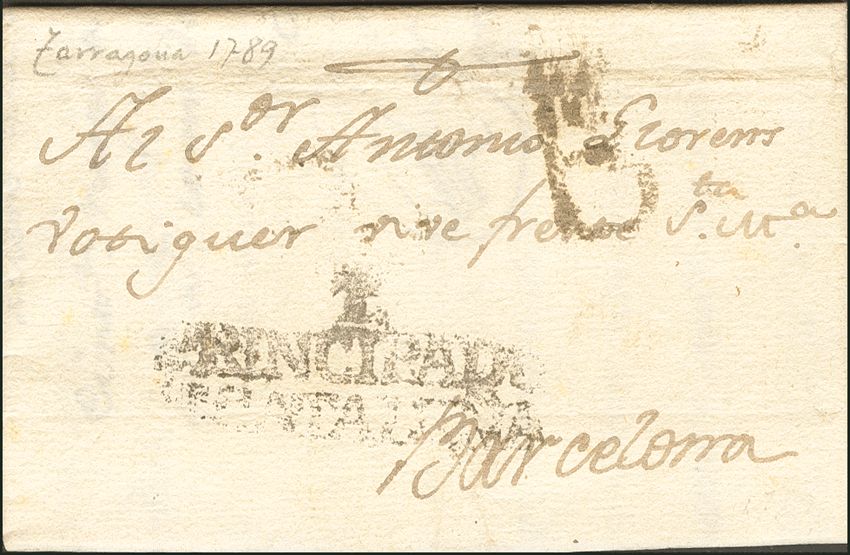 Tarragona 1789
Al S.or Antonio Llorens
Votiguer vive frente S.ta Ma.
6
T.
PRINCIPADO
DE CATALUÑA
Barcelona